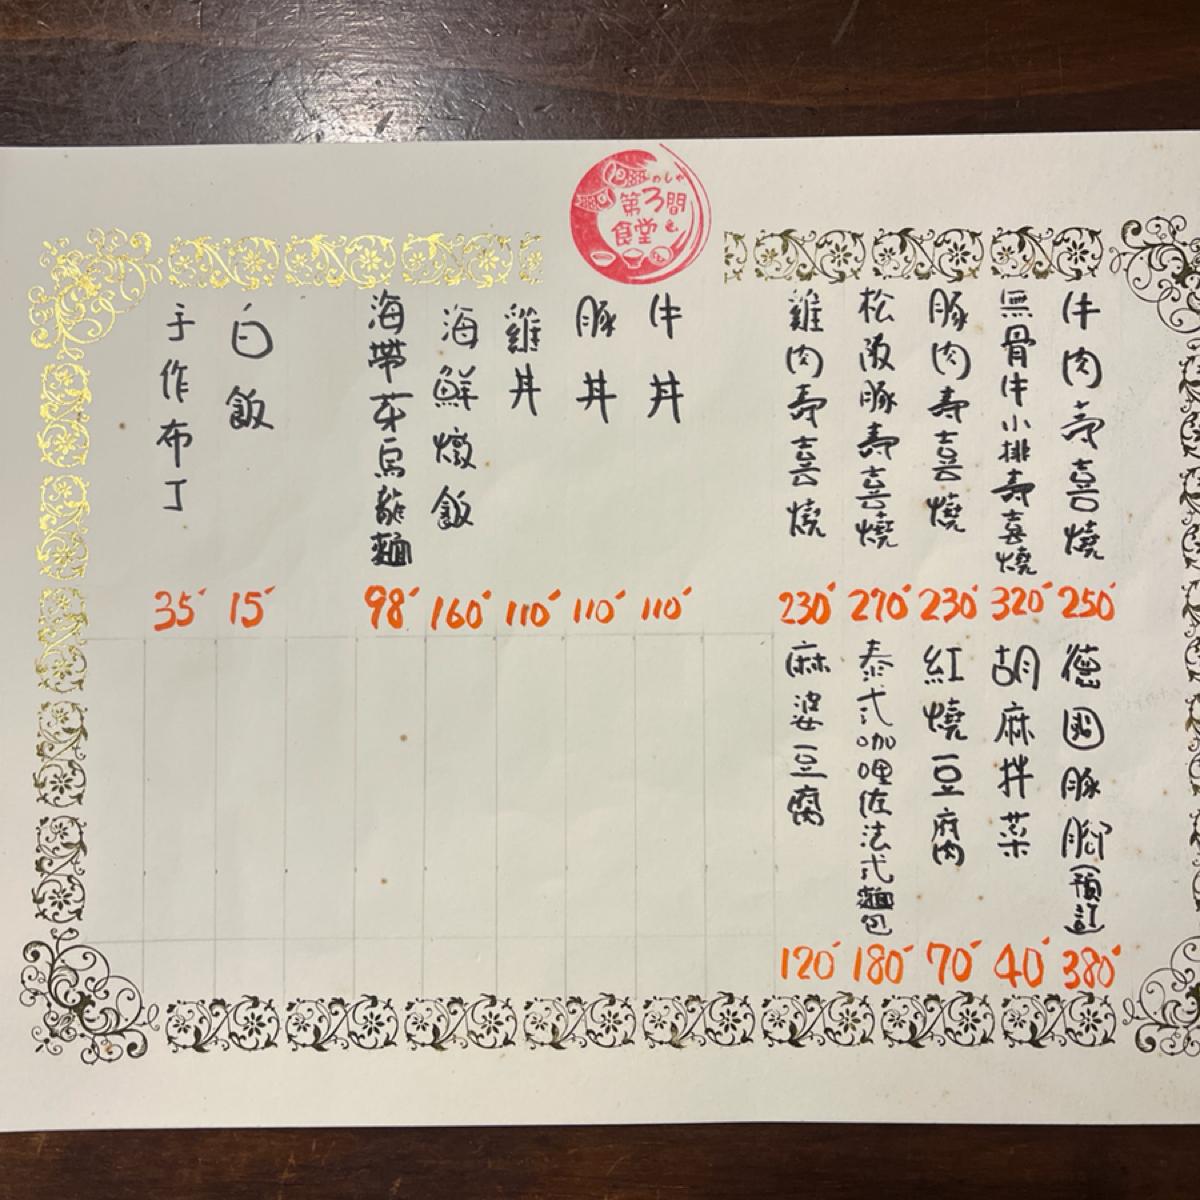 めしや
第3間
食堂
牛肉壽喜燒
250
無骨牛小排壽喜燒
320
豚肉壽喜燒
230
松阪豚壽喜燒
270
雞肉壽喜燒
230
牛丼
110
豚丼
110
雞丼
110
海鮮燉飯
160
海帶芽烏龍麵
98
白飯
15
手作布丁
35
德國豚腳(預訂)
380
胡麻拌菜
40
紅燒豆腐
70
泰式咖哩佐法式麵包
180
麻婆豆腐
120